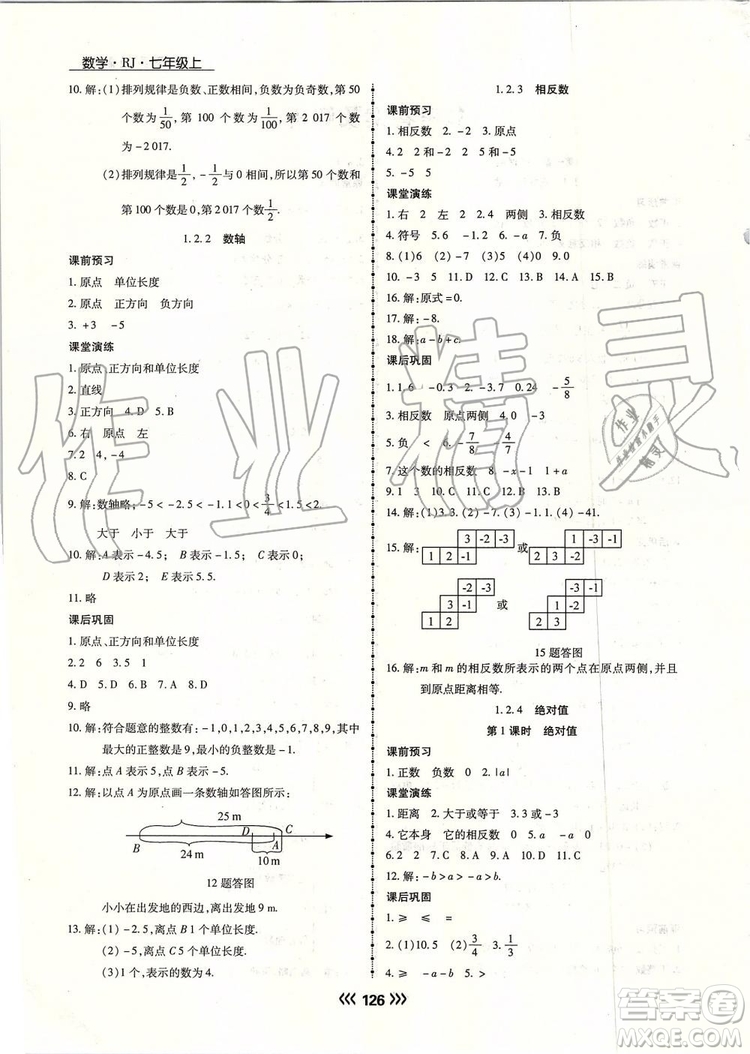 数学·RJ·七年级上
10. 解：(1)排列规律是负数、正数相间，负数为负奇数，第50
个数为1/50，第100个数为1/100，第2 017个数
为-2 017.
(2)排列规律是1/2，-1/2与0相间，所以第50个数和
第100个数是0，第2 017个数1/2.
1.2.2 数轴
课前预习
1. 原点 单位长度
2. 原点 正方向 负方向
3. +3 -5
课堂演练
1. 原点、正方向和单位长度
2. 直线
3. 正方向 4. D 5. B
6. 右 原点 左
7. 2 4，-4
8. C
9. 解：数轴略；-5<-2.5<-1.1<0<3/4<1.5<2.
大于 小于 大于
10. 解：A表示-4.5； B表示-2； C表示0；
D表示2； E表示5.5.
11. 略
课后巩固
1. 原点、正方向和单位长度
2. 2 6 3. 5 1
4. D 5. D 6. B 7. D 8. C
9. 略
10. 解：符合题意的整数有：-1,0,1,2,3,4,5,6,7,8,9,其中
最大的正整数是9,最小的负整数是-1.
11. 解：点A表示5,点B表示-2.
12. 解：以点A为原点画一条数轴如答图所示：
25 m
D C
B A
24 m
10 m
12题答图
小小在出发地的西边,离出发地9 m.
13. 解：(1)-2,距离点B 1个单位长度.
(2)-5,距离点C 5个单位长度.
(3)1个,表示的数为4.
1.2.3 相反数
课前预习
1. 相反数 2. -2 3. 原点
4. 2 2和-2 5和-5
5. -5 5
课堂演练
1. 右 2 左 2 2. 4 两侧 3. 相反数
4. 符号 5. 6 -2 6. -a 7. 负
8. (1)6 (2)-7 (3)5 (4)-5 9. D
10. -3 5 11. D 12. C 13. B 14. A 15. B
16. 解：原式=0.
17. 解：-8.
18. 解：a-b+c.
课后巩固
1. 1.6 -0.3 2. -3.7 0.24 -5/8
3. 相反数 原点两侧 4. -0.1 -100
5. 负 < 6. -7/8 -4/7
7. 这个数的相反数 8. -x-1 -1
14. 解：(1)3. (2)-7. (3)-1.2. (4)-41.
15. 解：
3 -2 -3
1 2 -1
或
1 -3 -1
2 3 -2
-2 -3
3 -1
1 2
或
-3 -1
1 -2
2 3
15题答图
16. 解：m和m的相反数所表示的两个点在原点两侧,并且
到原点距离相等.
1.2.4 绝对值
第1课时 绝对值
课前预习
1. 正数 负数 0 2. |a|
课堂演练
1. 距离 2. 大于或等于 3. 3或-3
4. 它本身 它的相反数 0 5. a -a 0
12. 解：-b>a>-a>b.
课后巩固
1. ≥ ≤ =
2. (1)10.5 (2)3/4 3. 1/3
4. ≥ -a-b 5. >
126
作业精灵
答案圈
MXQE.COM